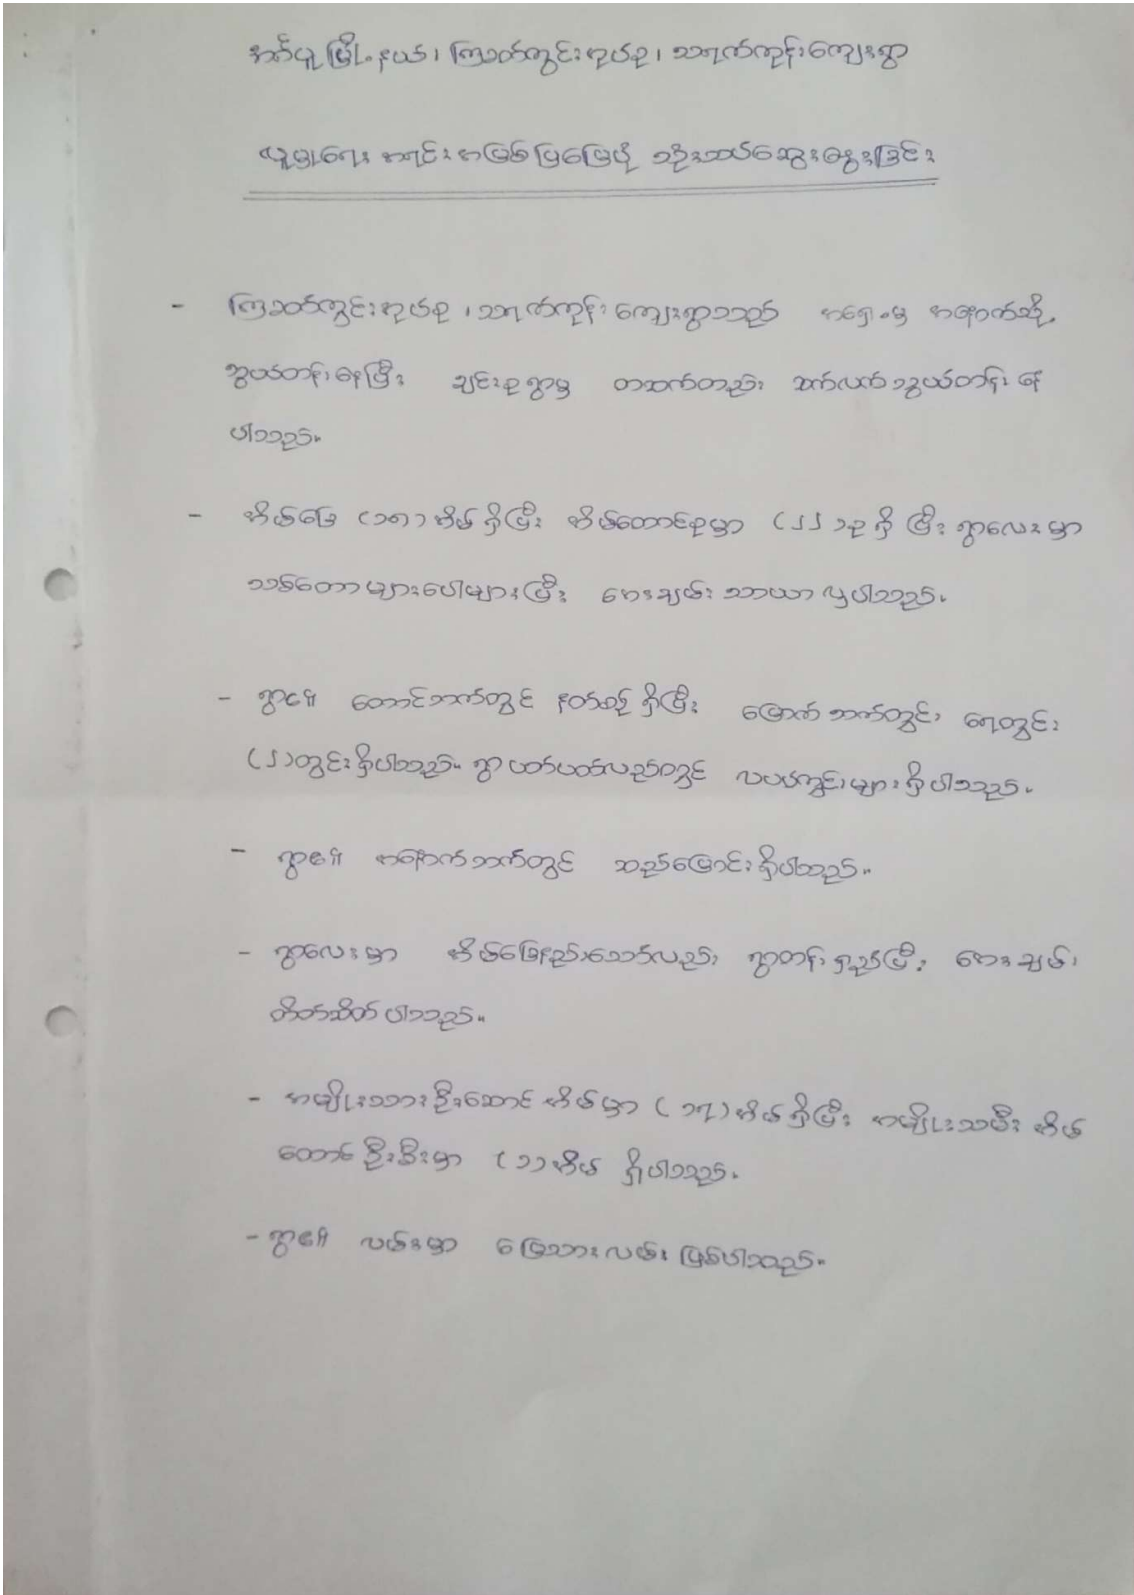 အင်္ဂပူမြို့နယ်၊ ကြခတ်ကွင်းအုပ်စု၊ သရက်ကုန်းကျေးရွာ
လူမှုရေး အရင်းအမြစ်ပြမြေပုံ သုံးသပ်ဆွေးနွေးခြင်း
- ကြခတ်ကွင်းအုပ်စု ၊ သရက်ကုန်း ကျေးရွာသည် အရှေ့မှ အနောက်သို့
သွယ်တန်းနေပြီး ချင်းစုရွာမှ တဆက်တည်း ဆက်လက်သွယ်တန်းနေ
ပါသည်။
- အိမ်ခြေ (၁၈) အိမ်ရှိပြီး အိမ်ထောင်စုမှာ (၂၂) စုရှိပြီး ရွာလေးမှာ
သစ်တောများပေါများပြီး အေးချမ်းသာယာလှပါသည်။
- ရွာ၏ တောင်ဘက်တွင် နတ်စင်ရှိပြီး မြောက်ဘက်တွင် ရေတွင်း
(၂)တွင်းရှိပါသည်။ ရွာပတ်ပတ်လည်တွင် လယ်ကွင်းများရှိပါသည်။
- ရွာ၏ အနောက်ဘက်တွင် ဆည်မြောင်းရှိပါသည်။
- ရွာလေးမှာ အိမ်ခြေနည်းသော်လည်း ရွာတန်းရှည်ပြီး အေးချမ်း
တိတ်ဆိတ်ပါသည်။
- အမျိုးသားဦးဆောင်အိမ်မှာ (၁၇) အိမ်ရှိပြီး အမျိုးသမီး အိမ်
ထောင်ဦးစီးမှာ (၁) အိမ် ရှိပါသည်။
- ရွာ၏ လမ်းမှာ မြေသားလမ်း ဖြစ်ပါသည်။